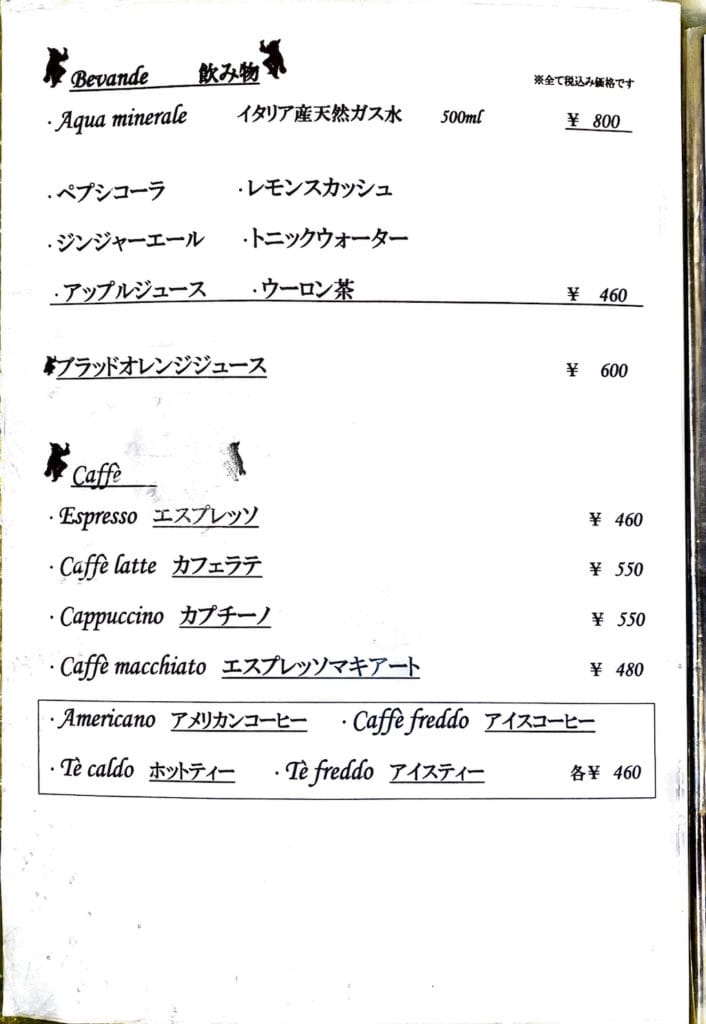 Bevande 飲み物 ※全て税込み価格です
・Aqua minerale イタリア産天然ガス水 500ml ¥ 800
・ペプシコーラ ・レモンスカッシュ
・ジンジャーエール ・トニックウォーター
・アップルジュース ・ウーロン茶 ¥ 460
ブラッドオレンジジュース ¥ 600
Caffè
・Espresso エスプレッソ ¥ 460
・Caffè latte カフェラテ ¥ 550
・Cappuccino カプチーノ ¥ 550
・Caffè macchiato エスプレッソマキアート ¥ 480
・Americano アメリカンコーヒー ・Caffè freddo アイスコーヒー
・Tè caldo ホットティー ・Tè freddo アイスティー 各¥ 460